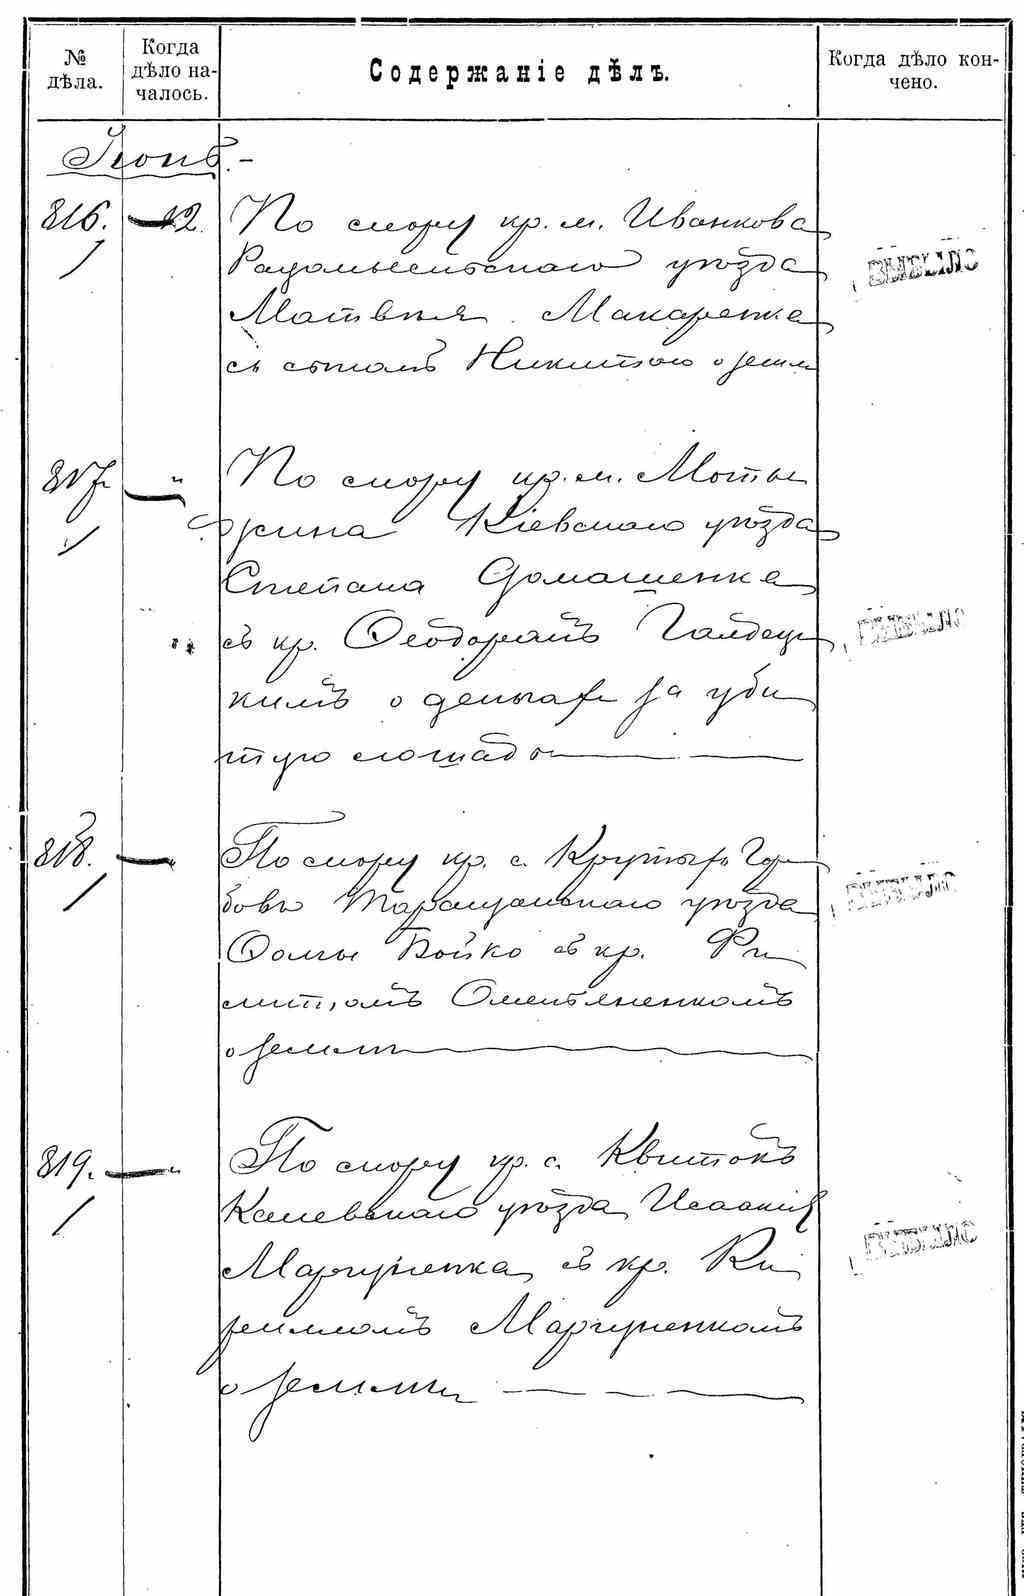 № дѣла.
Когда дѣло началось.
Содержаніе дѣлъ.
Когда дѣло кончено.
816. 12. По спору кр. м. Иванкова
Радомысльскаго уѣзда
Матвѣя Макаренка
съ сыномъ Никитою о земл
817. " По спору кр. м. Моты
жина Кіевскаго уѣзда
Степана Домашенка
съ кр. Ѳеодоромъ Галдец
кимъ о деньгах за уби
тую лошадь
818. " По спору кр. с. Крутыхъ Гор
бовъ Таращанскаго уѣзда
Ѳомы Бойко съ кр. Фи
Омельяненкомъ
о земли
819. " По спору кр. с. Квитокъ
Каневскаго уѣзда Исаакія
Марчуненка съ кр. Ки
рилломъ Марчуненкомъ
о земли